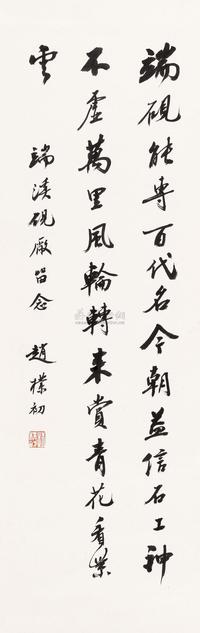 端硯能專百代名今朝益信石工神
不虛萬里風輪轉來賞青花看紫
雲
端溪硯廠留念
趙樸初